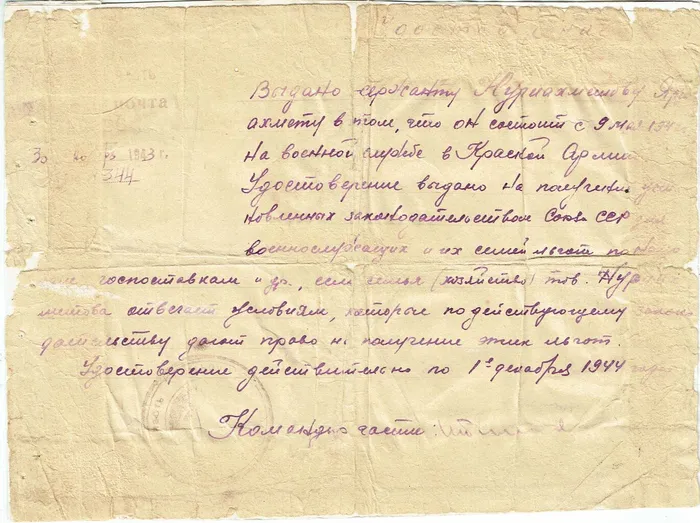 почта
30 1943 г.
344
Выдано сержанту Нуриахметову Яр
ахмету в том, что он состоит с 9 мая 194
на военной службе в Красной Армии
Удостоверение выдано на получение уста
новленных законодательством Союза ССР для
военнослужащих и их семей льгот по
госпоставкам и др., если семья (хозяйство) тов. Нури
метова отвечает условиям, которые по действующему закон
дательству дают право на получение этих льгот.
Удостоверение действительно по 1е декабря 1944 года
Командир части: